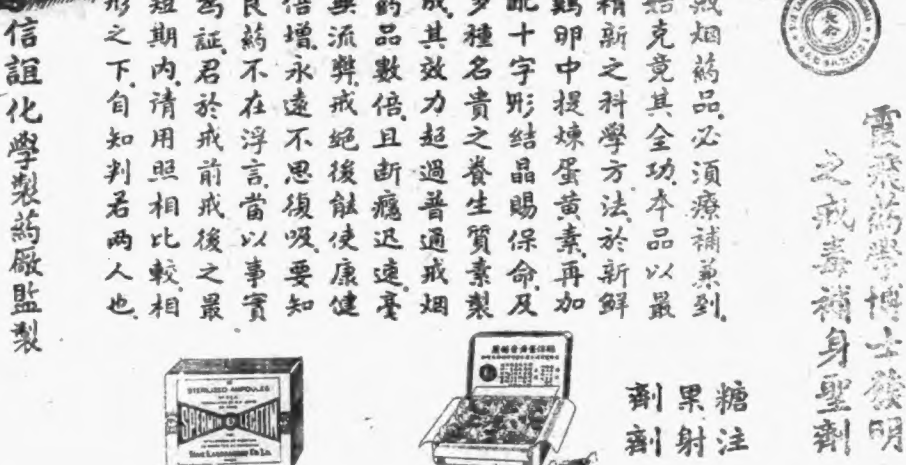 霞飛葯學博士發明
之戒毒補身聖劑
糖果劑
注射劑
戒烟葯品.必須療補兼到.
始克竟其全功.本品以最
精新之科學方法.於新鮮
鷄卵中提煉蛋黃素.再加
配十字形结晶賜保命及
多種名貴之養生質素製
成.其效力超過普通戒烟
葯品數倍.且断癮迟速.毫
無流弊.戒絕後能使康健
倍增.永遠不思復吸.要知
良葯不在浮言.當以事實
為証.君於戒前戒後之最
短期内.請用照相比較.相
形之下.自知判若两人也.
信誼化學製葯厰監製
STERILIZED AMPOULES
SPERMIN LECITIN